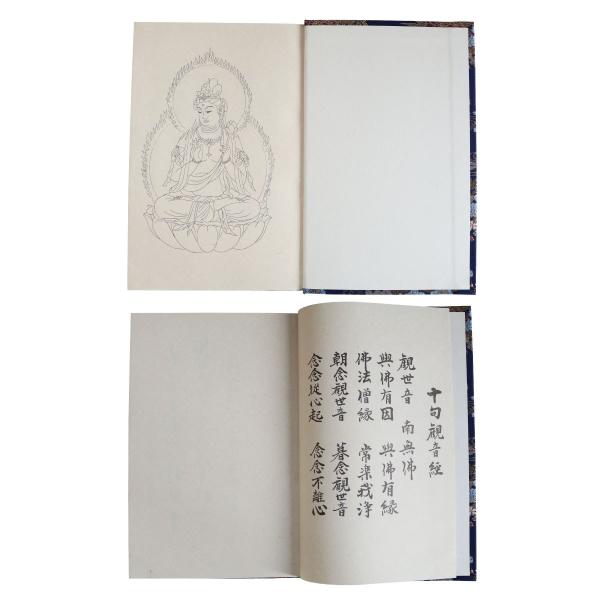 十句觀音經
觀世音 南無佛
與佛有因 與佛有緣
佛法僧緣 常楽我淨
朝念觀世音 暮念觀世音
念念從心起 念念不離心